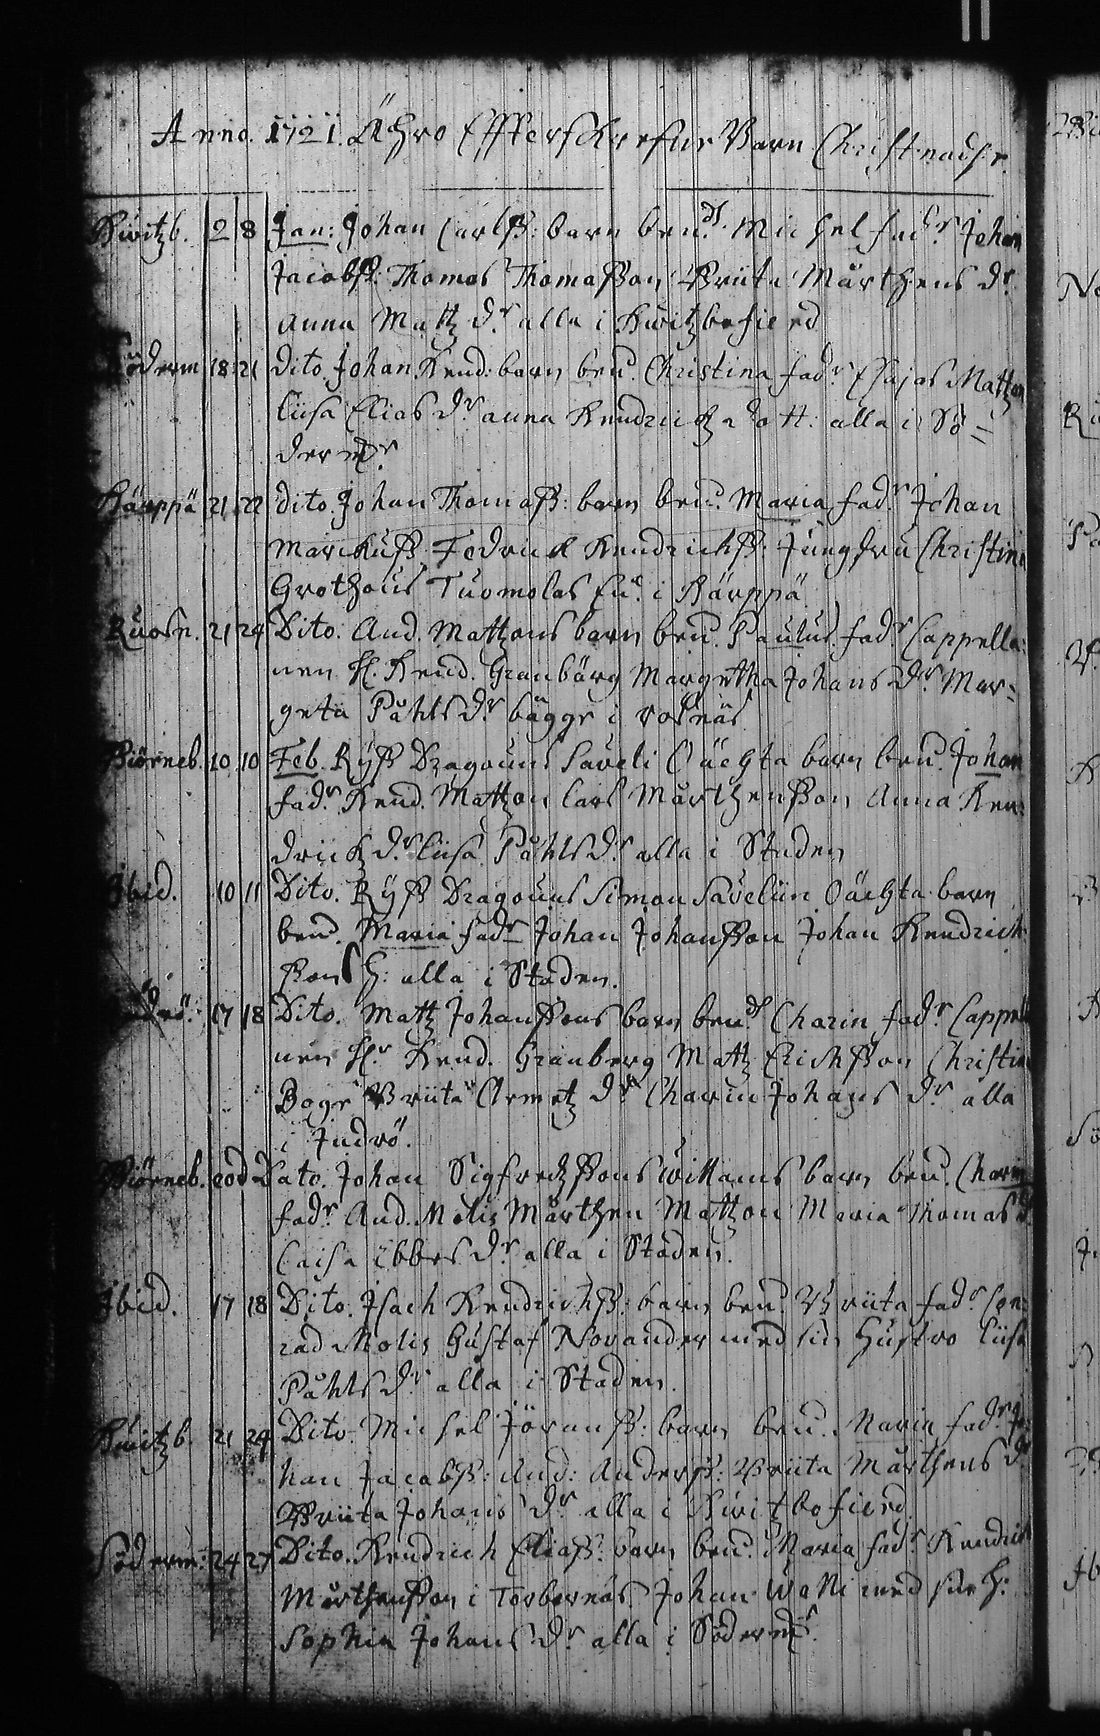 Anno. 1721. Ähro Effterschrefne Barn Christnade.
Kwitzb. 2 8 Jan: Johan Carlß: barn ben.d Michel fad.r Johan
Jacobß: Thomas Thomaßon Briita Mårthens d.r
Anna Mattz d.r alla i Kwitzbofierd
Söderm 18 21 Dito Johan Hend: barn ben. Christina fad.r Esajas Matzon
Liisa Elias d.r Anna Hendrichz dott. alla i Sö=
derm.
Härppä 21 22 Dito. Johan Thomaß: barn ben. Maria fad.r Johan
Marckuß. Fedrick Hendrichß: Jungfru Christina
Grothous Tuomolas i Härppä
Ruosn. 21 24 Dito. And. Mattzons barn ben. Paulus fad.r Cappella=
nen H. Hend. Granbärg Margetha Johans d.r Mar=
geta Påhls d.r bägge i rosnäs
Biörneb. 10 10 Feb. Ryß Dragouns Saveli barn ben. Johan
fad.r Hend. Mattzon Lars Mårthenßon Anna Hen=
drickz d.r Liisa Påhls d.r alla i Staden
Ibid. 10 11 Dito. Ryß Dragouns Simon Saveliin barn
bend. Maria fad.r Johan Johanßon Johan Hendrich
ßons h: alla i Staden.
17 18 Dito. Mattz Johanßons barn ben.d Charin fad.r Cappell
nen H.r Hend. Granberg Mattz Erichßon Christin
Boge Briita Clemetz d.r Charin Johans d.r alla
i Indrö.
Biörneb. eod Dato. Johan Sigfredzßons Willams barn ben. Charin
fad.r And. Molis Mårthen Mattzon Maria Thomas d.
Caisa Ebbes d.r alla i Staden.
Ibid. 17 18 Dito. Isach Hendrichß: barn ben. Briita fad.r Con=
rad Molis Gustaf Novander med sin Hustro Liisa
Påhls d.r alla i Staden.
Kwitzb. 21 24 Dito. Michel Jöranß: barn ben. Maria fad.r Jo
han Jacobß: And: Anderß: Briita Mårthens d.r
Briita Johans d.r alla i Kwitzbofierd
Söderm: 24 27 Dito. Hendrich Eliaß: barn ben. Maria fad.r Hendrich
Mårthenßon i Torbernäs Johan Walli med sin h:
Sophia Johans d.r alla i Söderm.